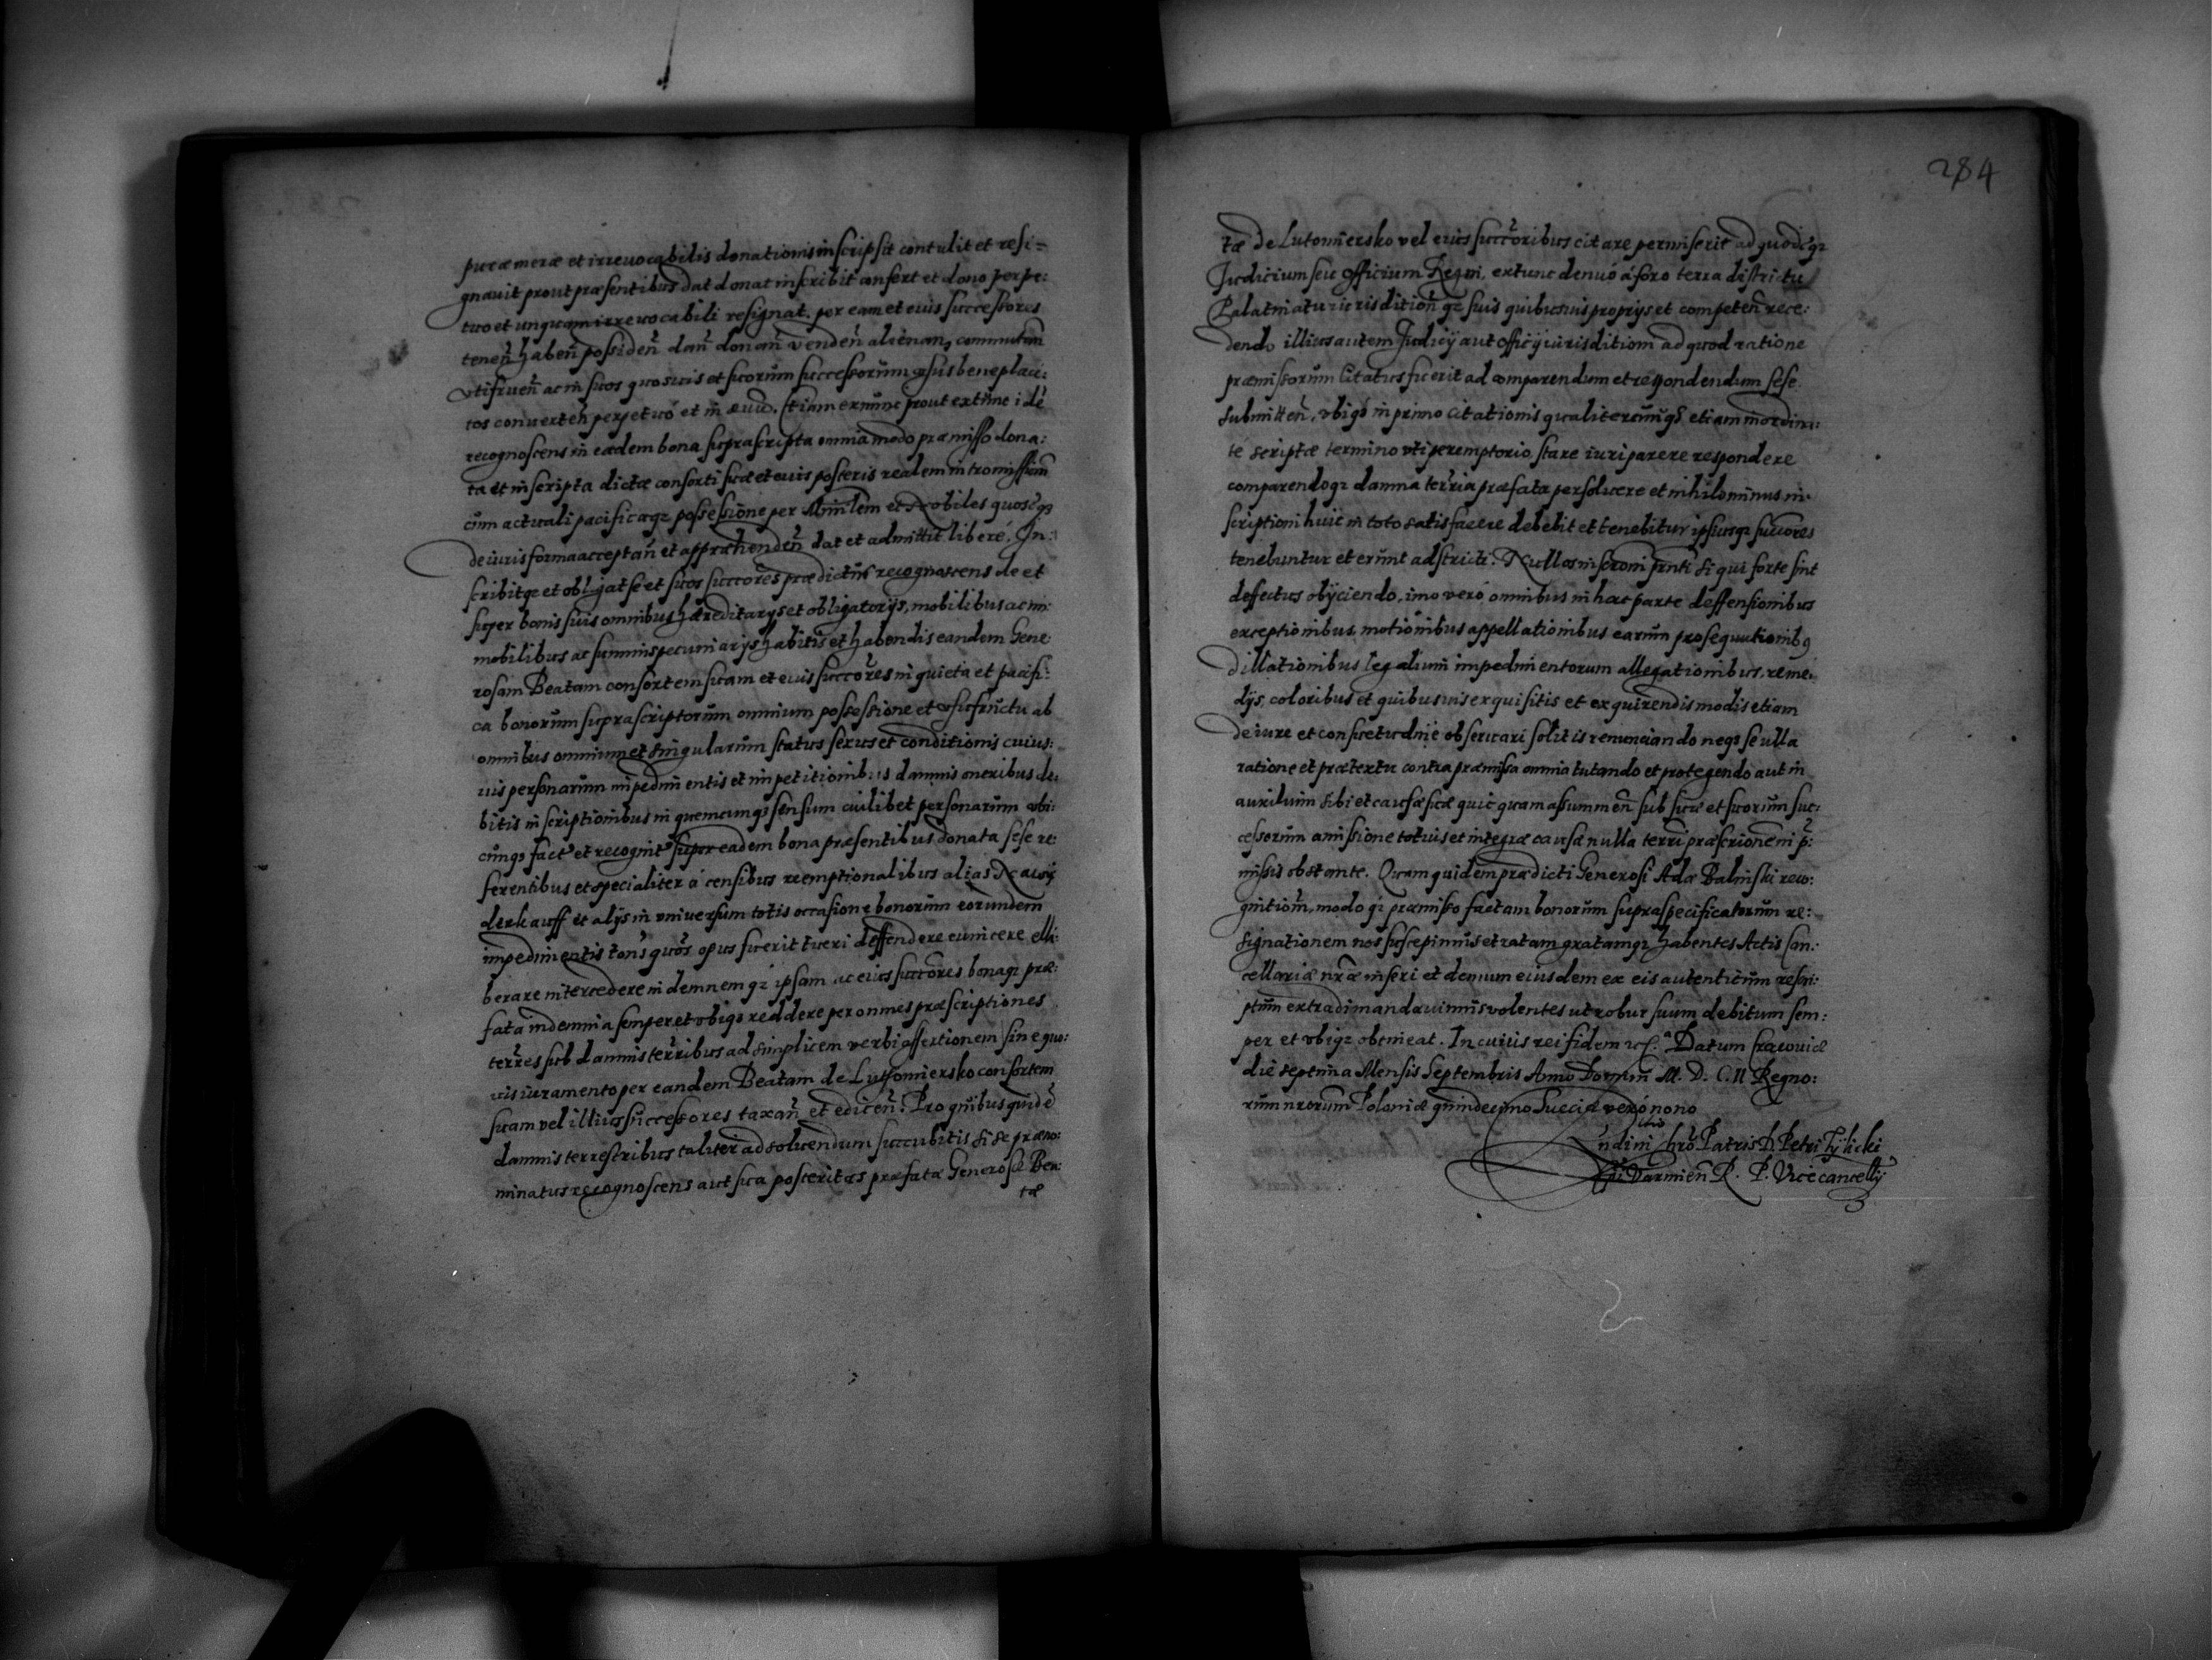 puræ meræ et irreuocabilis donationis inscripsit contulit et resi=
gnauit prout præsentibus dat donat inscribit confert et dono perpe:
tuo et unquam irreuocabili resignat. per eam et eius successores
teneñ habeñ possideñ dañ donañ vendeñ alienañ commutañ
vtifrueñ ac in suos quosuis et suorum successorum vsus beneplaci:
tos conuerteñ perpetuó et in æuũ. Etiam ex nunc prout ex tunc idẽ
recognoscens in eadem bona suprascripta omnia modo præmisso dona:
ta et inscripta dictæ consorti suæ et euis posteris realem intromissionẽ
cum actuali pacificaq₃ possessione per Ministrlem et Nobiles quoscq₃
de iuris forma acceptañ et appræhendeñ dat et admittit liberé. In:
scribitq₃ et obligat se et suos succores prædictus recognoscens de et
super bonis suis omnibus hæreditarys et obligatorys, mobilibus ac im:
mobilibus ac summis pecuniarys habitis et habendis eandem Gene
rosam Beatam consortem suam et eius succores in quieta et pacifi:
ca bonorum suprascriptorum omnium possessione et vsufructu ab
omnibus omnium et singularum status sexus et conditionis cuius:
uis personarum impedimentis et impetitionibus damnis oneribus de:
bitis inscriptionibus in quemcunq₃ sensum cuilibet personarum vbi:
cunq₃ fact et recognit super eadem bona præsentibus donata sese re:
ferentibus et specialiter á censibus reemptionalibus alias Na wy
derkauff et alys in vniuersum totis occasione bonorum eorundem
impedimentis tons quos opus fuerit tueri deffendere euincere elli:
berare intercedere indemnem q₃ ipsam ac eius succores bonaq₃ præ:
fata indemnia semper et vbiq₃ reddere per omnes præscriptiones
terres sub damnis terribus ad simplicem verbi assertionem sine quo:
uis iuramento per eandem Beatam de Lutomiersko consortem
suam vel illius successores taxañ et ediceñ. Pro quibus quidẽ
damnis terrestribus taliter ad soluendum succubitis si se præno:
minatus recognoscens aut sua posteritas præfatæ Generosæ Bea:
tæ
284
tæ de Lutomiersko vel eius succoribus citare permiserit ad quodcq₃
Judicium seu Officium Regni, ex tunc denuó á foro terra districtu
Palatinatu iurisditioñq₃ suis quibusuis proprys et competeñ rece:
dendo illius autem Judicy aut officy iurisditioni ad quod ratione
præmissorum Citatus fuerit ad comparendum et respondendum sese
submitteñ, vbiq₃ in primo citationis qualitercunq₃ etiam inordina:
té scriptæ termino vti peremptorio stare iuri parere respondere
comparendoq₃ damna terria præfata persoluere et nihilominus in:
scriptioni huic in toto satisfacere debebit et tenebitur ipsiusq₃ succores
tenebuntur et erunt adstricti. Nullos inscroni prnti si qui forte sint
deffectus obyciendo, imo veró omnibus in hac parte deffensionibus
exceptionibus, motionibus appellationibus earum prosequutionibꝯ
dillationibus legalium impedimentorum allegationibus, reme:
dys, coloribus et quibusuis exquisitis et exquirendis modis etiam
de iure et consuetudnie obseruari solitis renunciando neq₃ se ulla
ratione et prætextu contra præmissa omnia tutando et protegendo aut in
auxilium sibi et causæ suæ quicquam assummeñ sub sua et suorum suc:
cessorum amissione totius et integræ causæ nulla terri præscrione in p̃:
missis obstante. Quam quidem prædicti Generosi Adæ Balinski reco:
gnitioñ, modo q₃ præmisso factam bonorum supraspecificatorum re:
signationem nos suscepimus et ratam gratamq₃ habentes Actis Can:
cellariæ nræ inseri et demum eiusdem ex eis autenticum rescri:
ptum extradi mandauimus volentes ut robur suum debitum sem:
per et vbiq₃ obtineat. In cuius rei fidem ec. Datum Cracouiæ
die septima Mensis Septembris Anno Domini M. D. C. II Regno:
rum nrorum Poloniæ quindecimo Sueciæ veró nono
Patris D. Petri Tylicki
Epi Varmieñ R. P. Vicecancelly